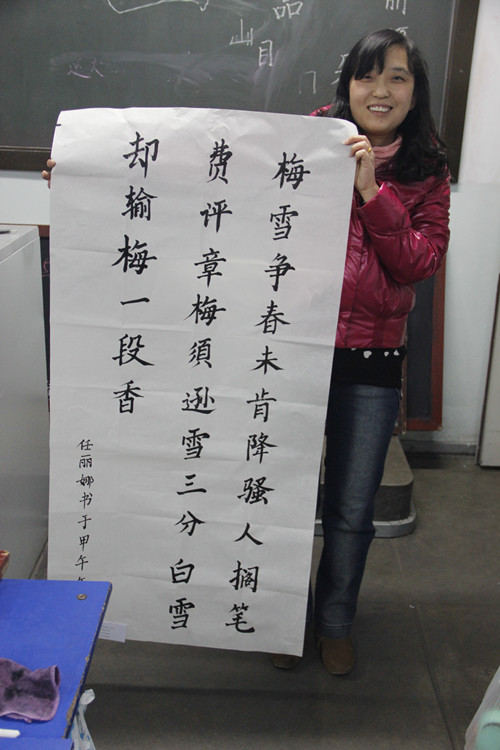 梅雪争春未肯降骚人搁笔
费评章梅須逊雪三分白雪
却输梅一段香
任丽娜书于甲午年
品
山
目